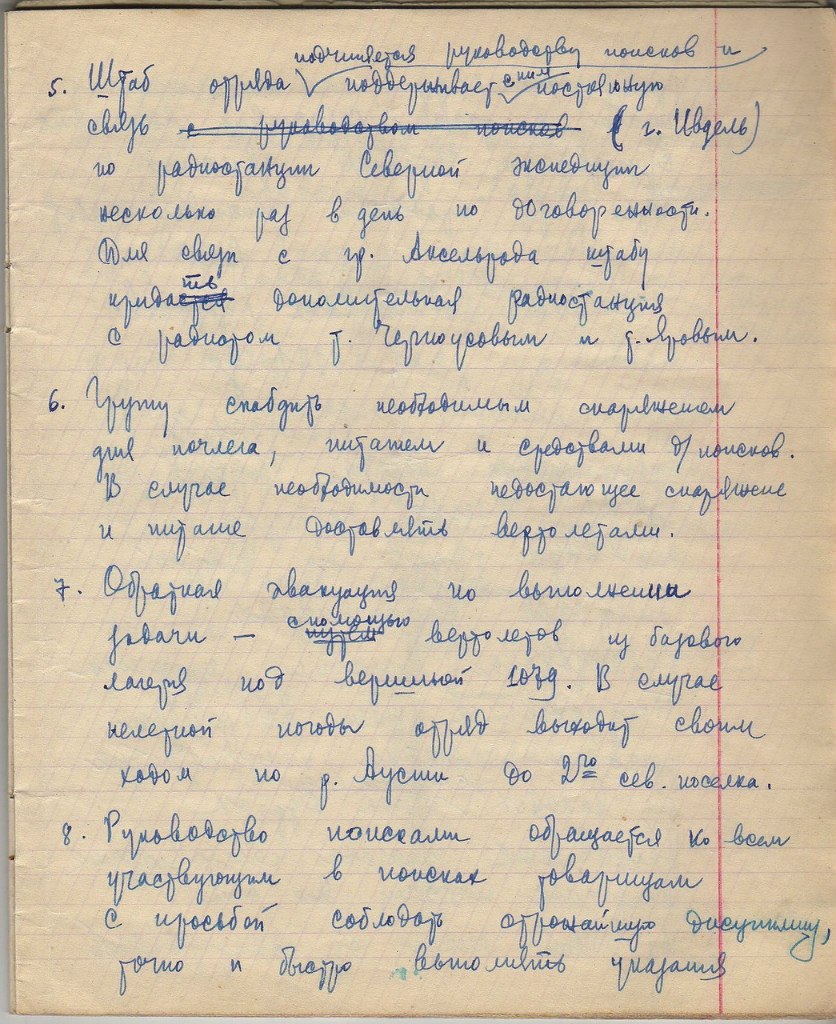 подчиняется руководству поисков и
5. Штаб отряда поддерживает с ним постоянную
связь с руководством поисков (г. Ивдель)
по радиостанции Северной экспедиции
несколько раз в день по договоренности.
Для связи с гр. Аксельрода штабу
придается ть дополнительная радиостанция
с радистом т. Черноусовым и т. Яровым.
6. Группу снабдить необходимым снаряжением
для ночлега, питанием и средствами д/поисков.
В случае необходимости недостающее снаряжение
и питание доставлять вертолетами.
7. Обратная эвакуация по выполнении
с помощью
задачи — путем вертолетов из базового
лагеря под вершиной 1079. В случае
нелетной погоды отряд выходит своим
ходом по р. Ауспии до 2го сев. поселка.
8. Руководство поисками обращается ко всем
участвующим в поисках товарищам
с просьбой соблюдать строжайшую дисциплину,
точно и быстро выполнять указания